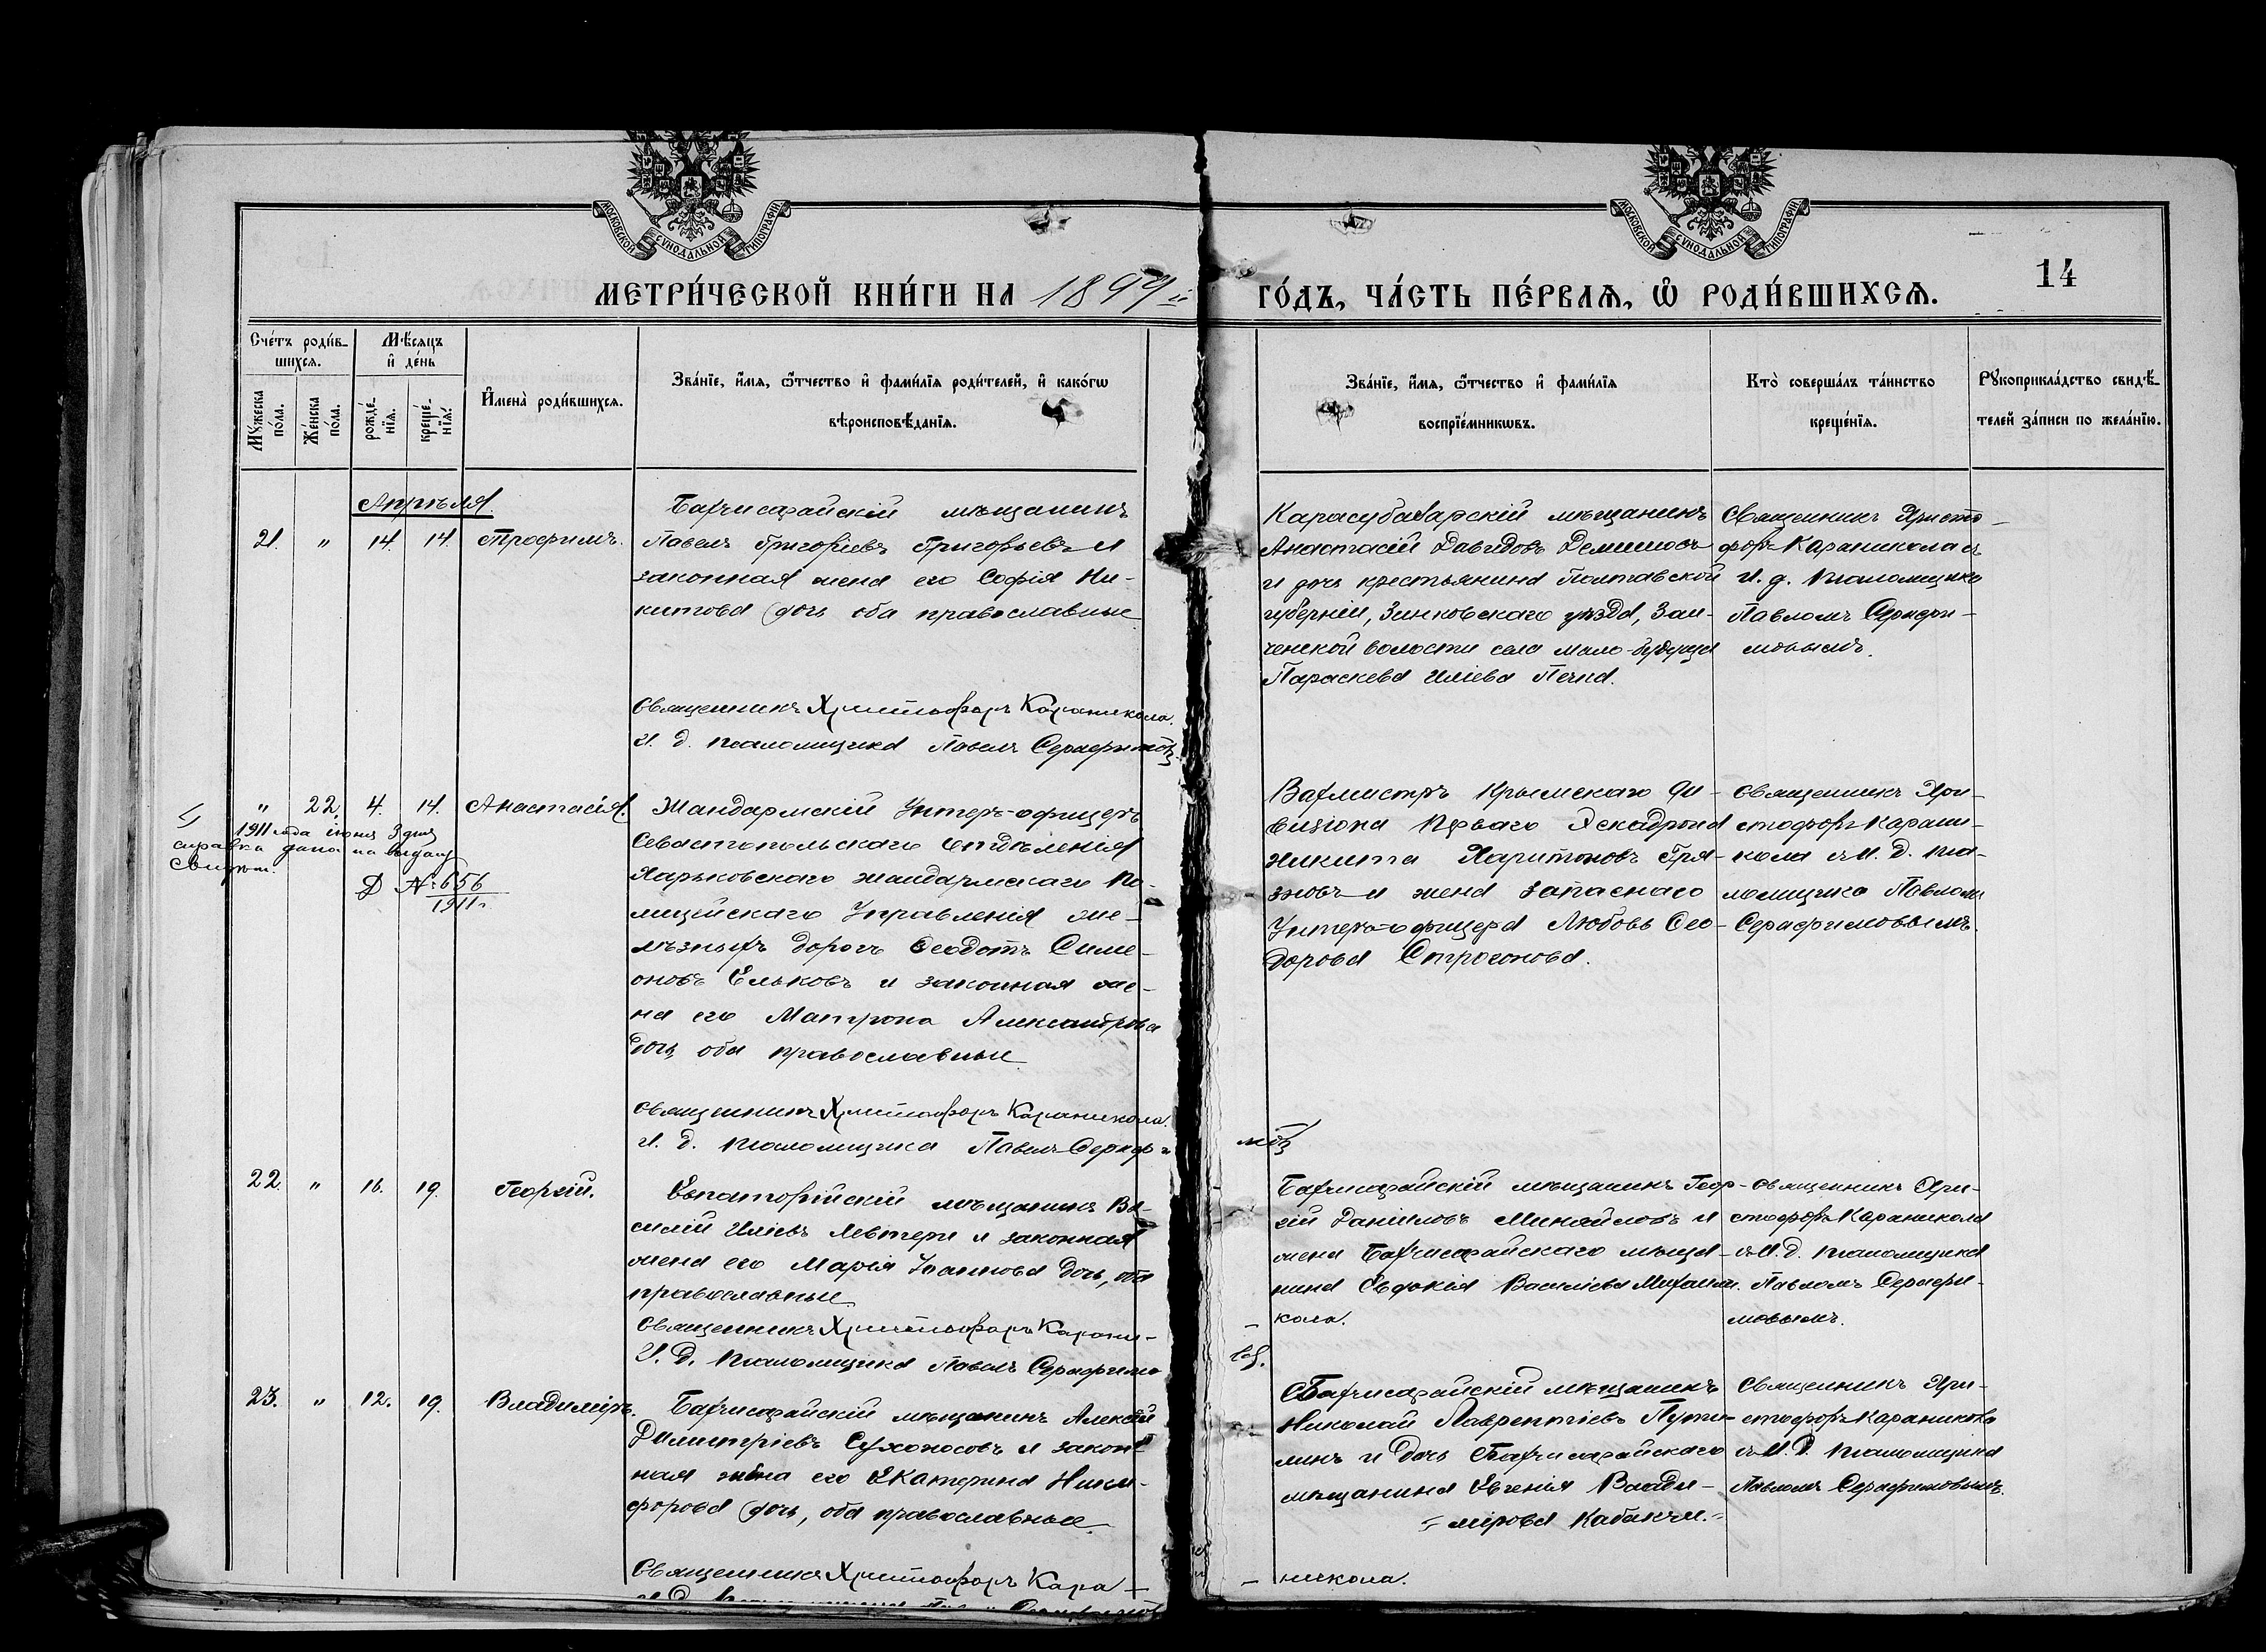 МОСКОВСКОЙ СУНОДАЛЬНОЙ ТИПОГРАФІИ
МОСКОВСКОЙ СУНОДАЛЬНОЙ ТИПОГРАФІИ
МЕТРИ́ЧЕСКОЙ КНИ́ГИ НА 1899й ГО́ДЪ, ЧА́СТЬ ПЕ́РВАѦ, Ѡ РОДИ́ВШИХСѦ.
14
Сче́тъ роди́в-
шихсѧ.
Мѣсѧцъ
и҆ де́нь
Мꙋ́жеска
по́ла.
Же́нска
по́ла.
рожде́-
нїѧ.
креще́-
нїѧ.
И҆мена̀ роди́вшихсѧ.
Зва́нїе, и҆́мѧ, ѻ҆́тчество и҆ фами́лїѧ роди́телей, и҆ како́гѡ
вѣроисповѣ́данїѧ.
Зва́нїе, и҆́мѧ, ѻ҆́тчество и҆ фами́лїѧ
воспрїе́мникѡвъ.
Кто̀ соверша́лъ та́инство
креще́нїѧ.
Рꙋкоприкла́дство свидѣ́-
телей за́писи по жела́нїю.
Апрѣля.
21. " 14. 14. Трофимъ.
Бахчисарайскій мѣщанинъ
Павелъ Григоріевъ Григорьевъ и
законная жена его Софія Ни-
китова дочь оба православные
Священникъ Христофоръ Караникола.
И. д. псаломщика Павелъ Серафимовъ
Карасубазарскій мѣщанинъ
Анастасій Давидовъ
и дочь крестьянина Полтавской
губерніи, Зинковскаго уѣзда,
ченской волости села Мало-будища
Параскева Иліева
Священникъ Христо-
форъ Караникола съ
И. д. псаломщика
Павломъ Серафи-
мовымъ.
" 22. 4. 14. Анастасія.
1911 года іюня 3 дня
справка дана на выдачу
свидѣт.
Д №656
1911 г.
Жандармскій Унтеръ-офицеръ
Севастопольскаго отдѣленія
Харьковскаго жандармскаго По-
лицейскаго Управленія же-
лѣзныхъ дорогъ Ѳеодотъ Симе-
оновъ Ельковъ и законная же-
на его Матрона Александрова
дочь оба православные
Священникъ Христофоръ Караникола.
И. д. псаломщика Павелъ Серафи-
мовъ
Вахмистръ Крымскаго Ди-
визіона Перваго Эскадрона
Никита Харитоновъ Гря-
зновъ и жена запаснаго
Унтеръ-офицера Любовь Ѳео-
дорова Строгонова.
Священникъ Хри-
стофоръ Карани-
кола съ И. д. пса-
ломщика Павломъ
Серафимовымъ.
22. " 16. 19. Георгій.
Евпаторійскій мѣщанинъ Ва-
силій Иліевъ Левтери и законная
жена его Марія Іоаннова дочь, оба
православные
Священникъ Христофоръ Карани-
кола.
И. д. псаломщика Павелъ Серафимо-
въ.
Бахчисарайскій мѣщанинъ Геор-
гій Даніиловъ Михайловъ и
жена Бахчисарайскаго мѣща-
нина Евдокія Василіева
Священникъ Хри-
стофоръ Караникола
съ И. д. псаломщика
Павломъ Серафи-
мовымъ.
23. " 12. 19. Владиміръ.
Бахчисарайскій мѣщанинъ Алексѣй
Димитріевъ Сухоносовъ и закон-
ная жена его Екатерина Ники-
форова дочь, оба православные
Священникъ Христофоръ Кара-
никола.
Бахчисарайскій мѣщанинъ
Николай Лаврентіевъ Пути-
линъ и дочь Бахчисарайскаго
мѣщанина Евгенія Влади-
мірова Кабакчи.
Священникъ Хри-
стофоръ Караникола
съ И. д. псаломщика
Павломъ Серафимовымъ.